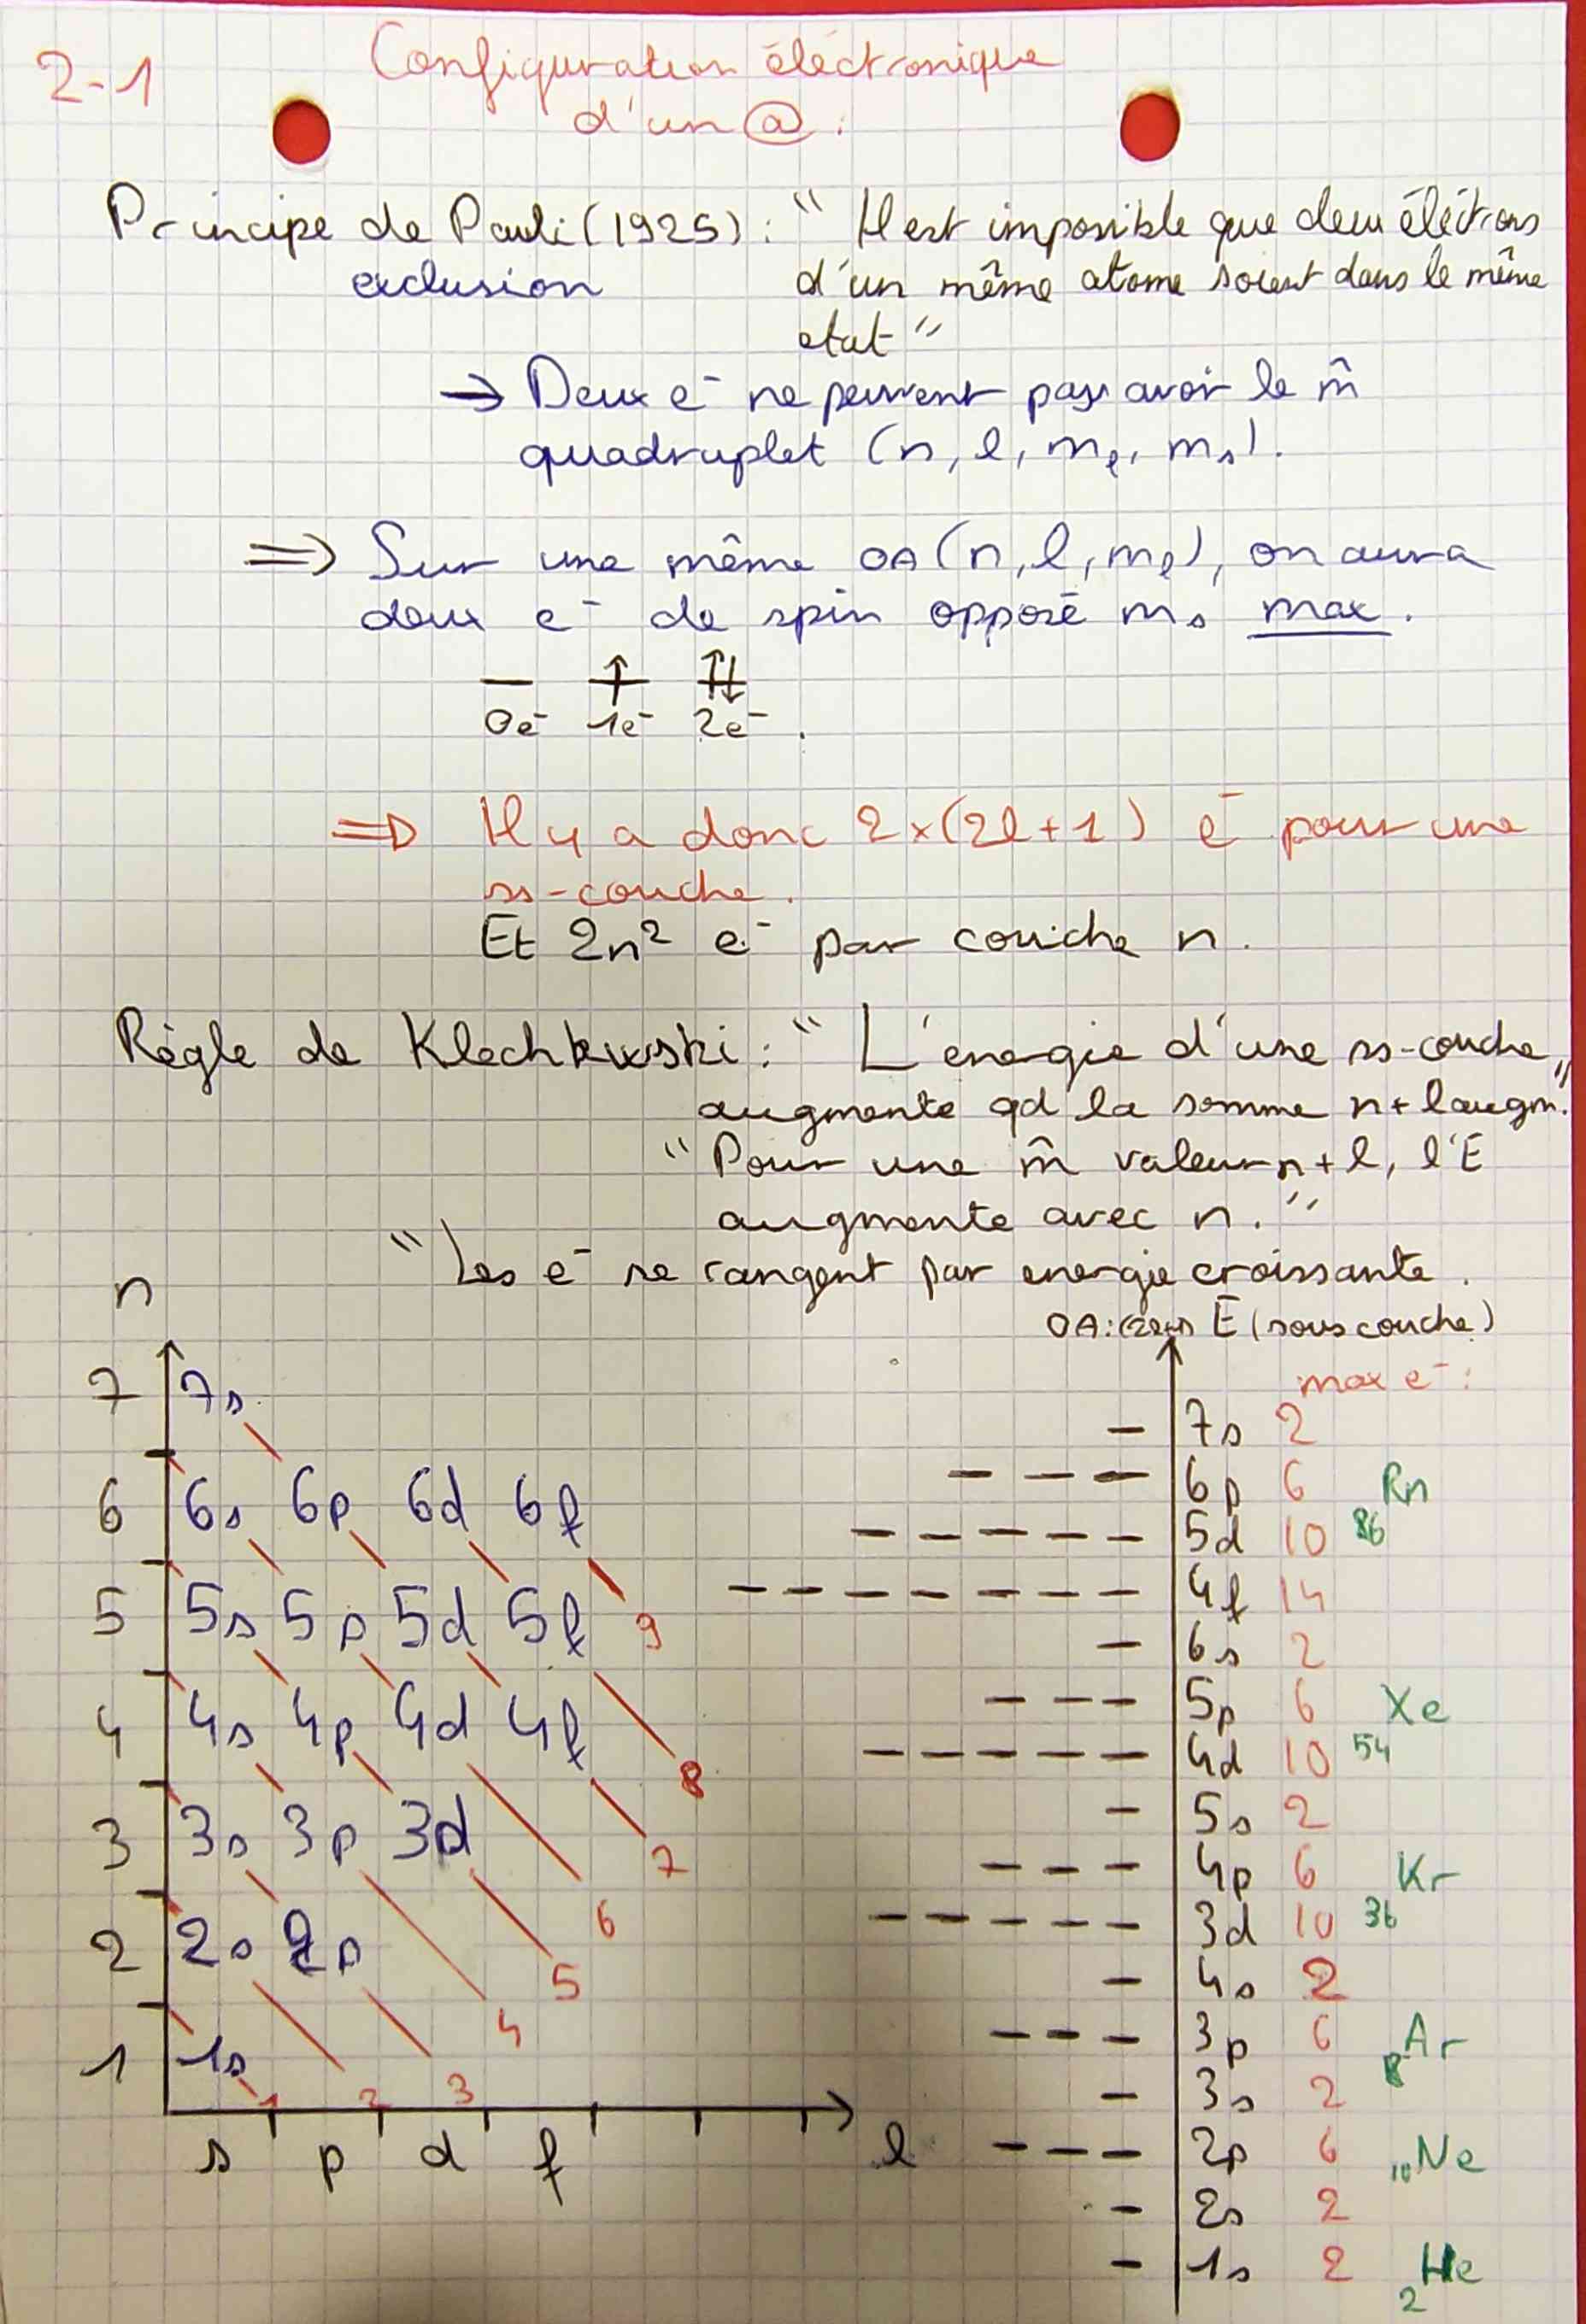 2-1
Configuration éléctronique
d'un @ :
Principe de Pauli (1925) : " Il est impossible que deux éléctrons
exclusion d'un même atome soient dans le même
etat "
→ Deux e⁻ ne peuvent pas avoir le m̂
quadruplet (n, l, mₗ, mₛ).
⇒ Sur une même OA (n, l, mₗ), on aura
deux e⁻ de spin opposé mₛ max.
— ↑ ↑↓
0e⁻ 1e⁻ 2e⁻.
⇒ Il y a donc 2×(2l+1) e⁻ pour une
ss-couche.
Et 2n² e⁻ par couche n.
Règle de Klechkwski : " L'énergie d'une ss-couche
augmente qd la somme n+l augm. "
" Pour une m̂ valeur n+l, l'E
augmente avec n. "
" Les e⁻ se rangent par energie croissante.
n
7 7s
6 6s 6p 6d 6f
5 5s 5p 5d 5f 9
4 4s 4p 4d 4f 8
3 3s 3p 3d 7
6
2 2s 2p 5
4
1 1s 1 2 3
s p d f l
OA: E (sous couche)
max e⁻ :
7s 2
6p 6 Rn
5d 10 86
4f 14
6s 2
5p 6 Xe
4d 10 54
5s 2
4p 6 Kr
3d 10 36
4s 2
3p 6 Ar
8
3s 2
2p 6 10Ne
2s 2
1s 2 2He